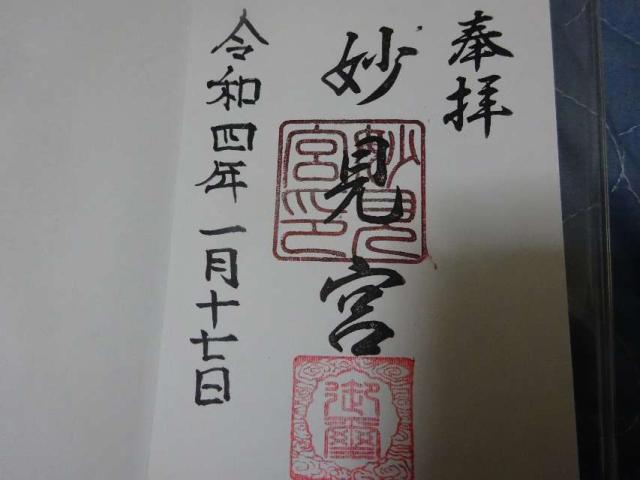 奉拝
妙見宮
妙見宮印
御璽
令和四年一月十七日